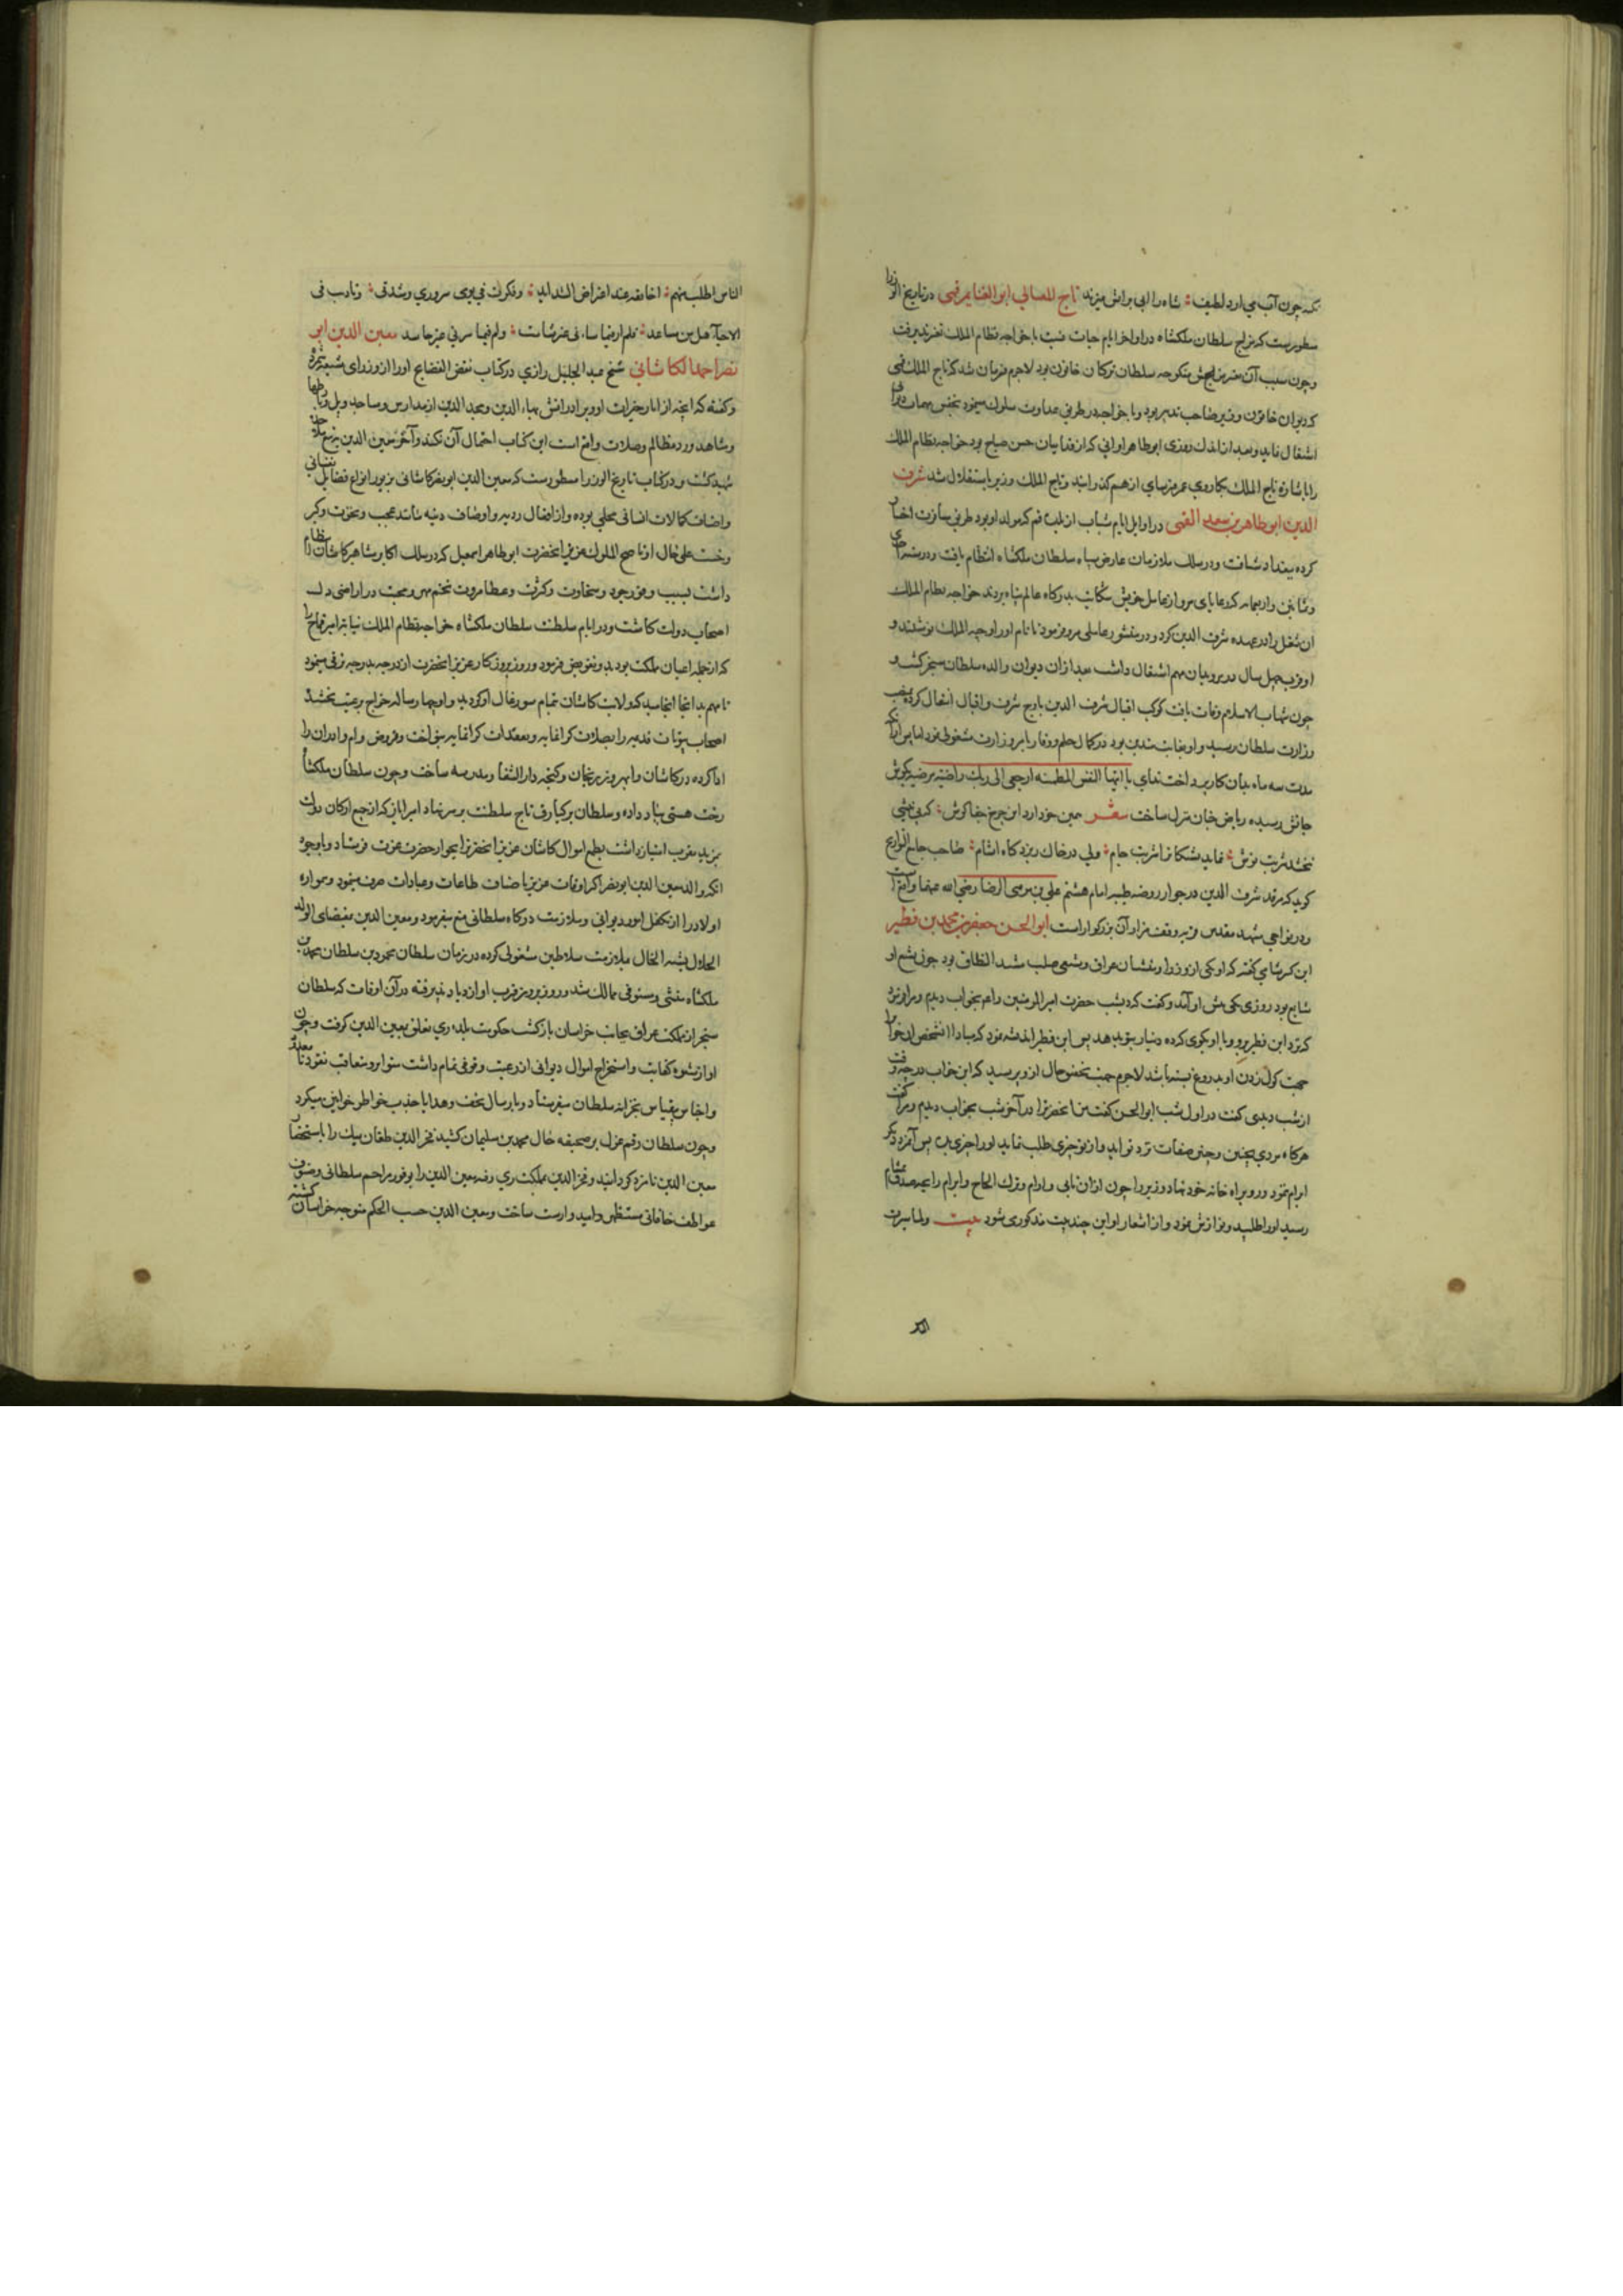 نکته چون آب می آرد لطیف شاه را ابی براتش میزند تاج المعالی ابو الغنایم قمی در تاریخ الوزرا
مسطورست که مزاج سلطان ملکشاه در اواخر ایام حیات نسبت با خواجه نظام الملک تغیر پذیرفت
و چون سبب آن تغیر مزاج منکوحه سلطان ترکان خاتون بود لاجرم فرمان شد که تاج الملک قمی
که دیوان خاتون و وزیر صاحب تدبیر بود و با خواجه در طریق عداوت سلوک مینمود بنفس مهمات دیوان
اشتغال نماید و بعد از اندک روزی ابو طاهر اوانی که از فداییان حسن صباح بود خواجه نظام الملک
را باشاره تاج الملک بکارد عمر فرسای از هم گذرانید و تاج الملک وزیر باستقلال شد شرف
الدین ابو طاهر بن سعد القمی در اوایل ایام شباب از بلده قم که مولد او بود طریق مسافرت اختیار
کرده ببغداد شتافت و در سلک ملازمان عارض سپاه سلطان ملکشاه انتظام یافت و در سنه احدی
و ثمانین و اربعمایه که رعایای مرو از عامل خویش شکایت بدرگاه عالم پناه بردند خواجه نظام الملک
آن شغل را در عهده شرف الدین کرد و در منشور عاملی مرو فرمود تا نام او را وجیه الملک نوشتند و
او قریب چهل سال در مرو بدان مهم اشتغال داشت بعد از آن دیوان والده سلطان سنجر گشت و
چون شهاب الاسلام وفات یافت کوکب اقبال شرف الدین باوج شرف و اقبال انتقال کرده بمنصب
وزارت سلطان رسید و او بغایت متدین بود در کمال حلم و وقار بامر وزارت مشغولی نمود اما پس از آنکه
مدت سه ماه بدان کار پرداخت ندای یا ایتها النفس المطمئنه ارجعی الی ربک راضیه مرضیه بگوش
جانش رسیده ریاض جنان منزل ساخت شعر همین خو دارد این چرخ جفا کوش که بی نیشی
نبخشد شربت نوش نماید شکافا شربت جام ولی در خاک ریزد گاه اشام صاحب جامع التواریخ
گوید که مرقد شرف الدین در جوار روضه طیبه امام هشتم علی بن موسی الرضا رضی الله عنهما واقع است
و در نواحی مشهد مقدس مزرعه وقف مزار آن بزرگوار است ابو الحسن جعفر بن محمد بن فطیر
ابن کثیر شامی گفته که او یکی از وزرا و منشیان عراق و شیعی صلب شدید الطلاق بود چون تشیع او
شایع بود روزی یکی پیش او آمد و گفت که دیشب حضرت امیر المومنین را هم بخواب دیدم و مرا فرمود
که نزد ابن فطیر برو و با او بگوی که ده دینار بتو بدهد پس ابن فطیر اندیشه نمود که مبادا آن شخص این خواب را
جهت گول زدن او بدروغ بسته باشد لاجرم جهت تحقیق حال از او پرسید که این خواب در چه وقت
از شب دیدی گفت در اول شب ابو الحسن گفت من آنحضرت را در آخر شب بخواب دیدم و مرا گفت
هرگاه مردی بچنین و چنین صفات نزد تو آید و از تو چیزی طلب نماید او را چیزی مده پس آنمرد دیگر
ابرام ننمود و رو براه خانه خود نهاد و وزیر را چون از ان تانی و ارام و ترک الحاح و ابرام رایحه صدق بمشام
رسید او را طلبید و نوازش نمود و از اشعار او این چند بیت مذکور می شود بیت ولما سبرت

الناس اطلب منهم اخا ثقة عند اعتراض الشداید وفکرت فی یومی سروری وشدتی ونادیت فی
الاحیاء هل من مساعد فلم ار فیما ساءنی غیر شامت ولم فیما سرنی غیر حاسد معین الدین ابو
نصر احمد الکاشانی شیخ عبد الجلیل رازی در کتاب نقض الفضایح او را از وزرای شیعه شمرده
و گفته که انچه از آثار خیرات او و برادرانش بهاء الدین و مجد الدین از مدارس و مساجد و پل و رباطها
و مشاهد و رد مظالم و صلات واقع است این کتاب احتمال آن نکند و آخر معین الدین بزخم ملاحده
شهید گشت و در کتاب تاریخ الوزرا مسطورست که معین الدین ابو نصر کاشانی بزیور انواع فضایل نفسانی
و اصناف کمالات انسانی محلی بوده و از افعال ردیه و اوصاف دنیه مانند عجب و نخوت و کبر
و خست علی حال از ناصح الملوک عزیز آنحضرت ابو طاهر اسمعیل که در سلک اکابر و مشاهیر کاشان انتظام
داشت بسبب وفور جود و سخاوت و کثرت و عطا مروت تخم مهر و محبت در اراضی دل
اصحاب دولت کاشت و در ایام سلطنت سلطان ملکشاه خواجه نظام الملک نیابت امیر قماج را
که از جمله اعیان مملکت بود بدو تفویض فرمود و روز بروز کار عزیز آنحضرت از درجه بدرجه ترقی مینمود
تا مهم بدانجا انجامید که ولایت کاشان تمام سورغال او گردید و او چهار ساله خراج برعیت بخشید
اصحاب بیوتات قدیمه را بصلات گرانمایه و معتقدات گرانمایه بنواخت و قروض و ام واداران را
ادا کرده در کاشان و ابهر و زنجان و گنجه دار الشفا و مدرسه ساخت و چون سلطان ملکشاه
رخت هستی بباد داده و سلطان برکیارق تاج سلطنت بر سر نهاد امیر ایاز که از جمع ارکان دولت
بمزید تقرب امتیاز داشت بطمع اموال کاشان عزیز آنحضرت را بجوار حضرت عزت فرستاد و باوجود
آنکه والد معین الدین ابو نصر اکثر اوقات عزیز باصناف طاعات و عبادات صرف مینمود و همواره
اولاد را از تکفل امور دیوانی و ملازمت درگاه سلطانی منع میفرمود و معین الدین بمقتضای الولد
الحلال یشبه الخال بملازمت سلاطین مشغولی کرده در زمان سلطان محمود بن سلطان محمد بن
ملکشاه منشی و مستوفی ممالک شد و روز بروز قرب او ازدیاد پذیرفته در آن اوقات که سلطان
سنجر از مملکت عراق بجانب خراسان بازگشت حکومت بلده ری تعلق بمعین الدین گرفت و چون
او از شیوه کفایت و استخراج اموال دیوانی از رعیت وقوفی تمام داشت متواتر و متعاقب نقود نامعدود
و اجناس بیقیاس بخزانه سلطان میفرستاد و بارسال تحف و هدایا جذب خواطر خواتین میکرد
و چون سلطان رقم عزل بر صحیفه حال محمد بن سلیمان کشید فخر الدین طغان بیک را باستحضار
معین الدین نامزد گردانید و فخر الدین بمملکت ری رفته معین الدین را بوفور مراحم سلطانی و صنوف
عواطف خاقانی مستظهر و امیدوار ساخت و معین الدین حسب الحکم متوجه خراسان گشته
الناس